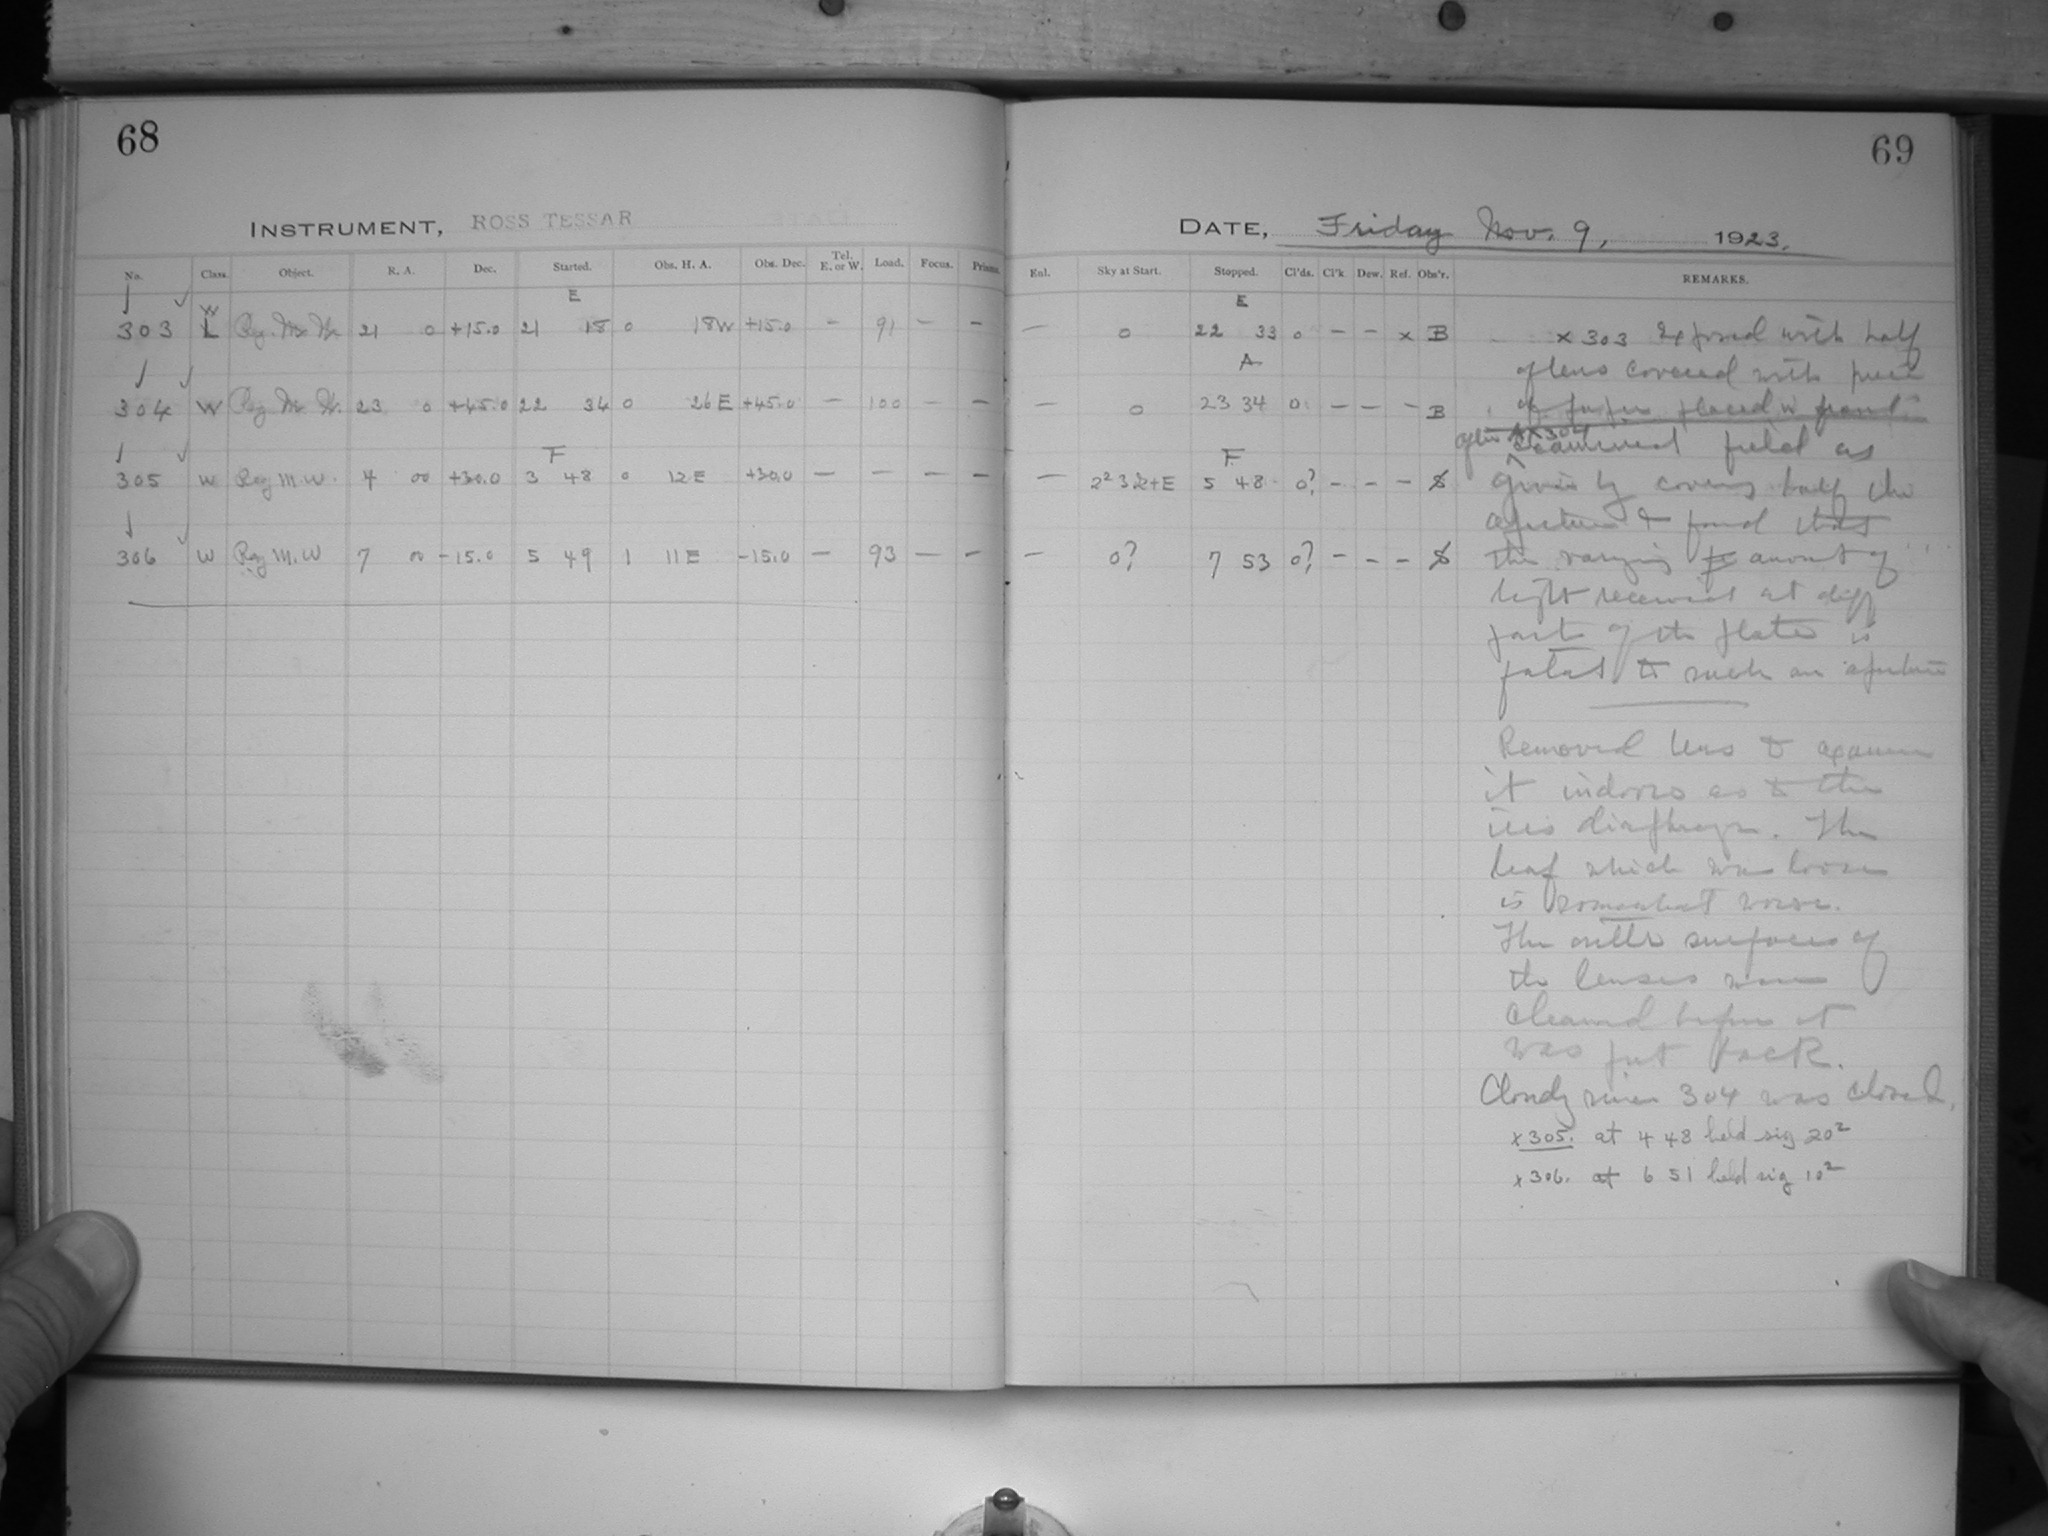 68
INSTRUMENT, ROSS TESSAR
No. Class. Object. R. A. Dec. Started. Obs. H. A. Obs. Dec. Tel. E. or W. Load. Focus. Prisms.
E
303 L W Reg. M. W. 21 0 +15.0 21 18 0 18W +15.0 – 91 – –
304 W Reg M. W. 23 0 +45.0 22 34 0 26E +45.0 – 100 – –
F
305 W Reg M.W. 4 00 +30.0 3 48 0 12E +30.0 – – – –
306 W Reg M.W 7 00 -15.0 5 49 1 11E -15.0 – 93 – –
69
DATE, Friday Nov. 9, 1923.
Enl. Sky at Start. Stopped. Cl'ds. Cl'k Dew. Ref. Obs'r. REMARKS.
E
– 0 22 33 0 – – x B
A
– 0 23 34 0 – – – B
F
– 2² 3k+E 5 48 0? – – –
– 0? 7 53 0? – – –
x 303 Exposed with half
of lens covered with piece
of paper placed in front
after x304
examined field as
given by covering half the
aperture & found that
the varying amount of
light received at diff
parts of the plate is
fatal to such an aperture
Removed lens to examine
it indoors as to the
iris diaphragm. The
leaf which was loose
is somewhat worse.
The outer surfaces of
the lenses were
cleaned before it
was put back.
Cloudy since 304 was closed.
x 305. at 4 48 held sig 20²
x 306. at 6 51 held sig 10²